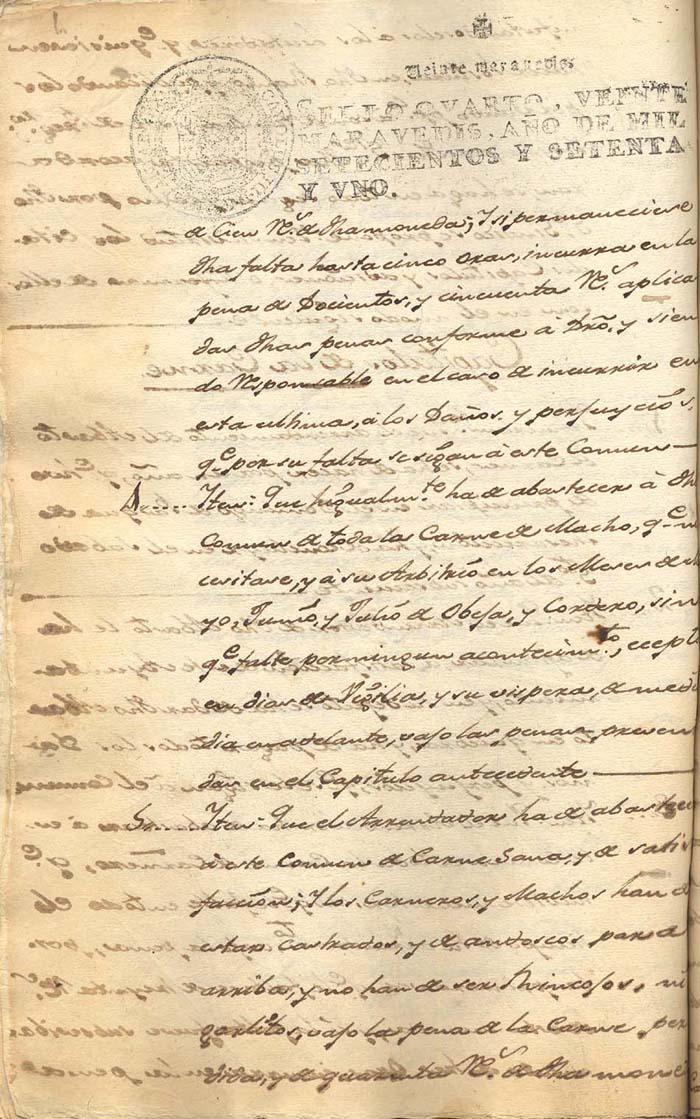 Veinte maravedis
SELLO QVARTO, VEINTE
MARAVEDIS, AÑO DE MIL
SETECIENTOS Y SETENTA
Y VNO.
de Cien Rˢ. de dha moneda; Y si permaneciese
dha falta hasta cinco oras, incurra en la
pena de Docientos, y cincuenta Rˢ. aplica
das dhas penas conforme a Dro, y sien
do Responsable en el caso de incurrir en
esta ultima, á los Daños, y perjuycios,
qᵉ. por su falta se sigan á este Comun
4..... Iten: Que higualmᵗᵉ ha de abastecer á dh
Comun de toda la Carne de Macho, qᵉ. ne
cesitase, y á su Arbitrio en los Meses de Ma
yo, Junio, y Julio de Obeja, y Cordero, sin
qᵉ. falte por ningun acontecimᵗᵒ, ecepto
en dias de Vigilia, y su vispera, de medio
dia en adelante, vajo las penas preveni
das en el Capitulo antecedente
5.... Iten: Que el Arrendador ha de abastecer
á este Comun de Carne Sana, y de satis
facción; Y los Carneros, y Machos han de
estar Castrados, y de andoscos para
arriba, y no han de ser Rincosos, ni
garlitos, vajo la pena de la Carne per
dida, y de quarenta Rˢ. de dha mone